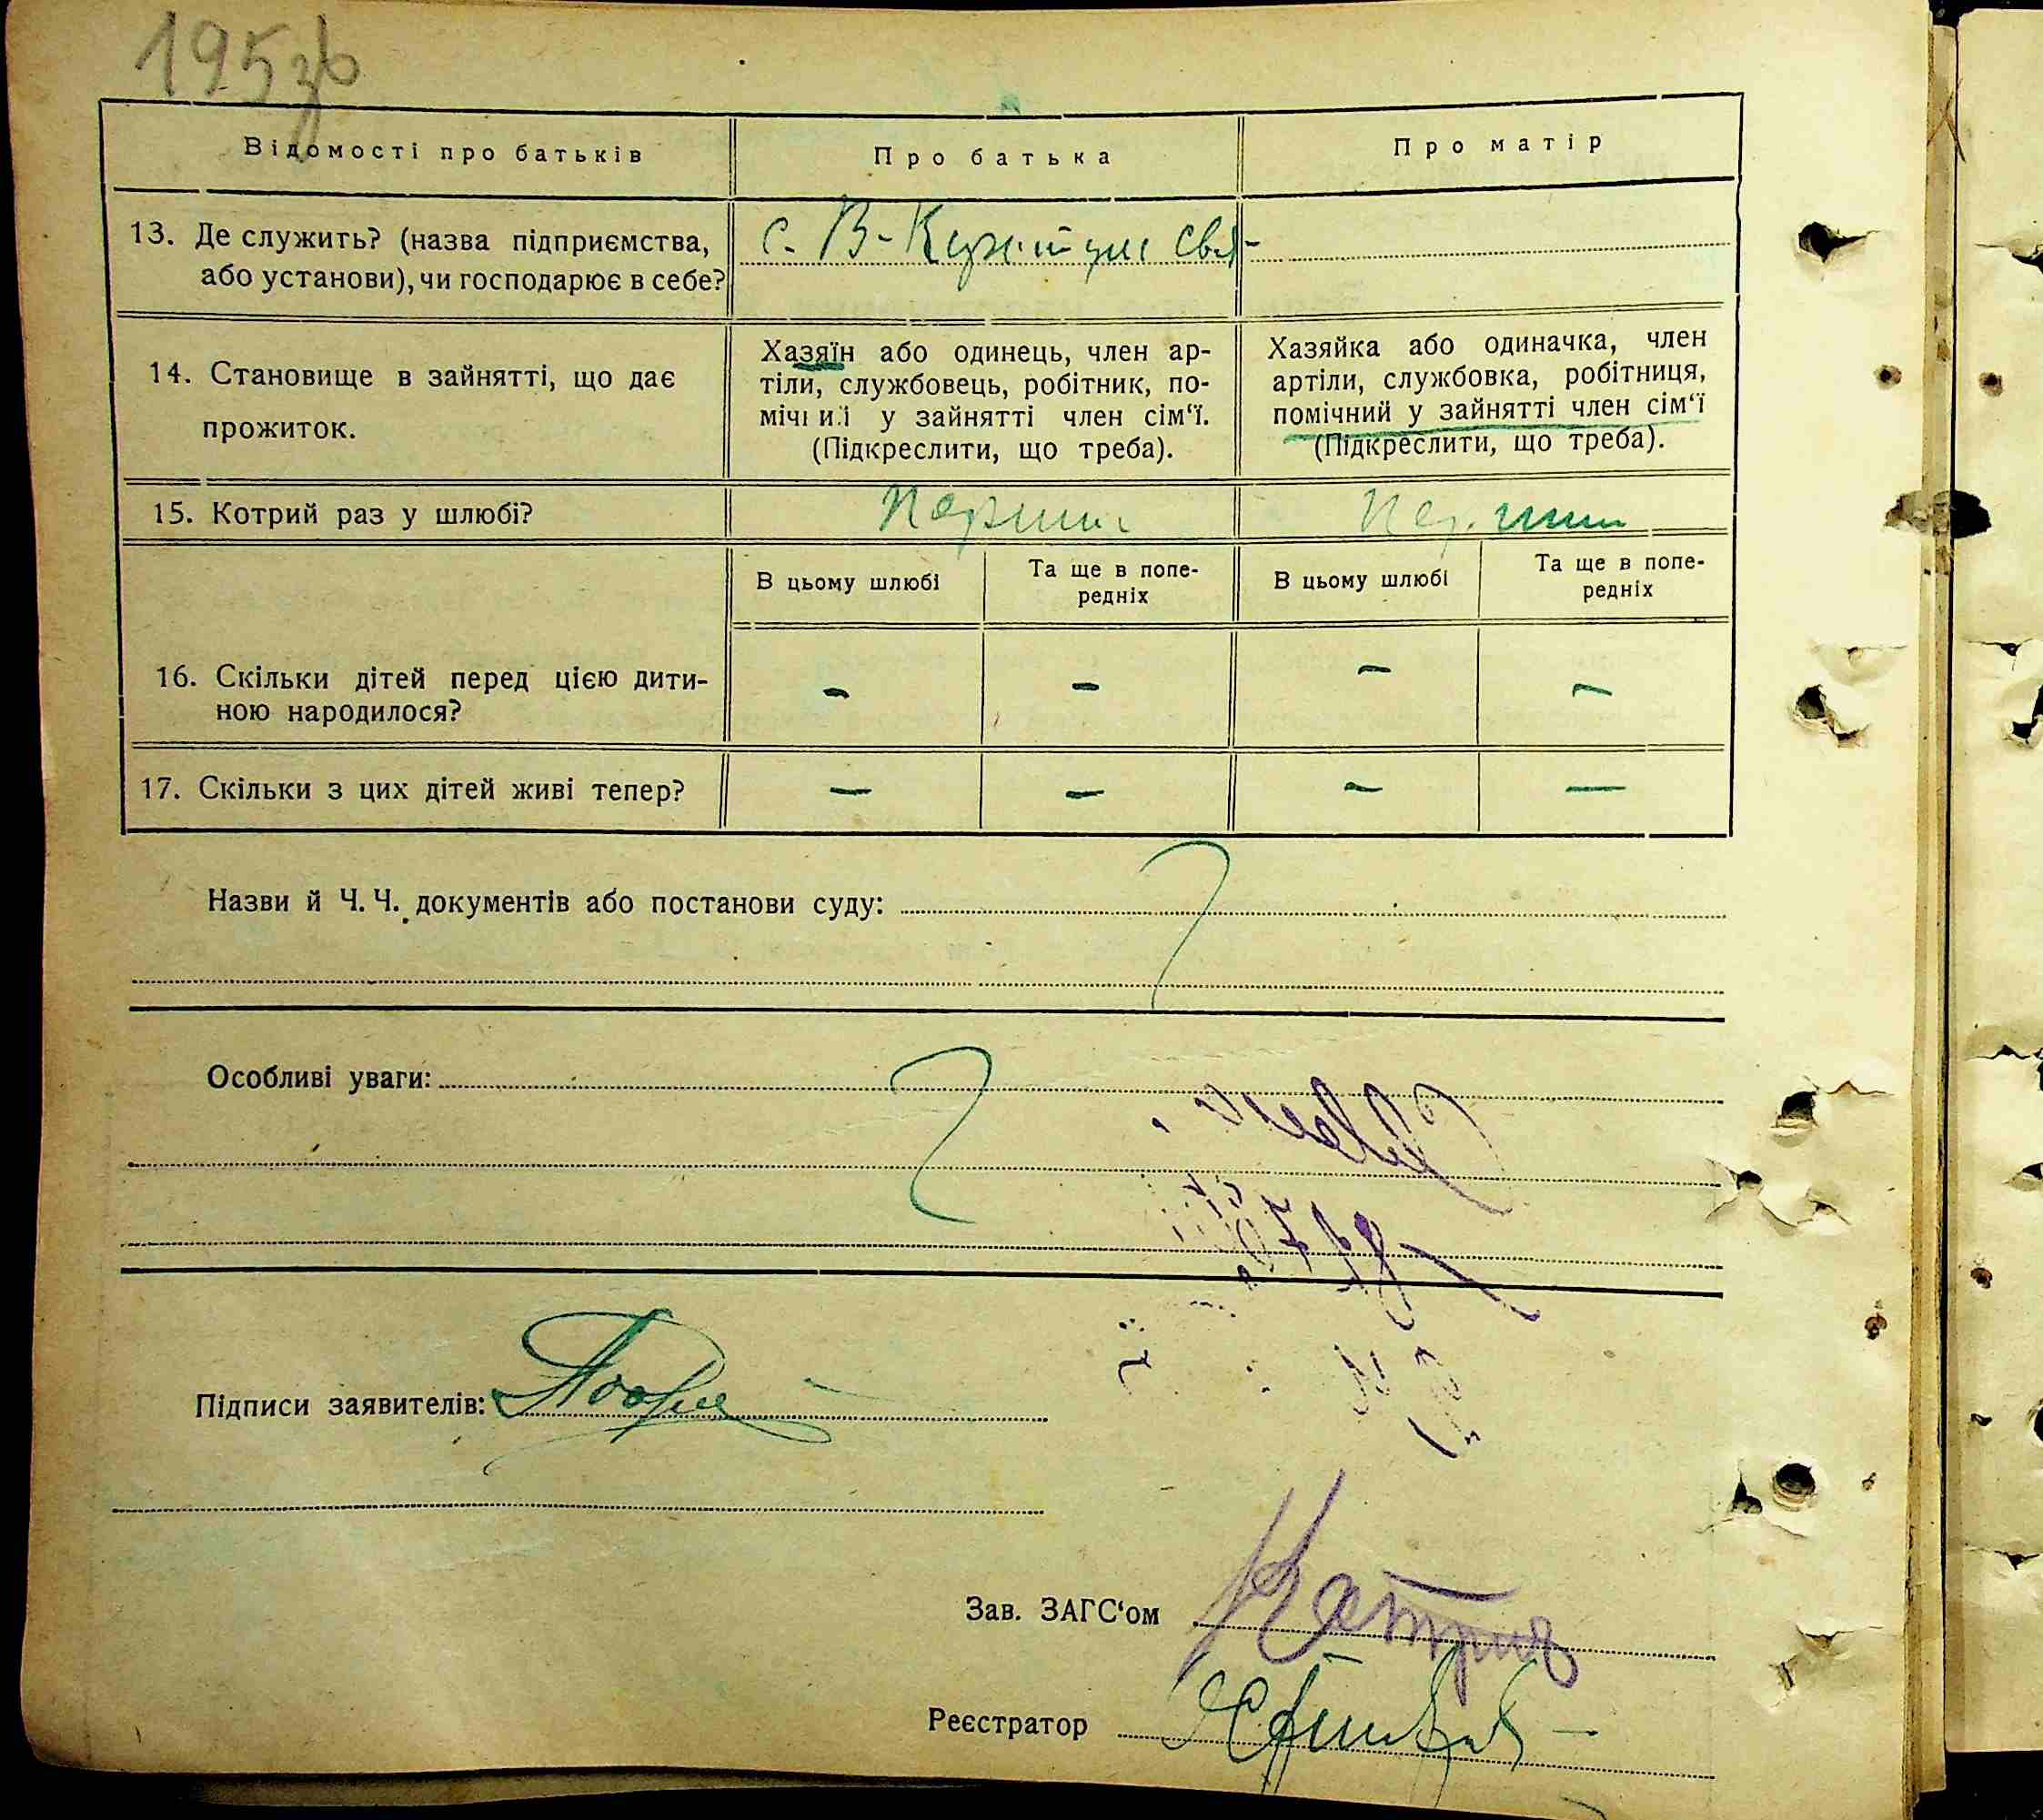 195зв
Відомості про батьків
Про батька
Про матір
13. Де служить? (назва підприємства,
або установи), чи господарює в себе?
с. В-
14. Становище в зайнятті, що дає
прожиток.
Хазяїн або одинець, член ар-
тіли, службовець, робітник, по-
мічний у зайнятті член сім‘ї.
(Підкреслити, що треба).
Хазяйка або одиначка, член
артіли, службовка, робітниця,
помічний у зайнятті член сім‘ї
(Підкреслити, що треба).
15. Котрий раз у шлюбі?
Перший
Перший
В цьому шлюбі
Та ще в попе-
редніх
В цьому шлюбі
Та ще в попе-
редніх
16. Скільки дітей перед цією дити-
ною народилося?
– – – –
17. Скільки з цих дітей живі тепер?
– – – –
Назви й Ч. Ч. документів або постанови суду:
Особливі уваги:
Підписи заявителів:
Зав. ЗАГС‘ом
Реєстратор